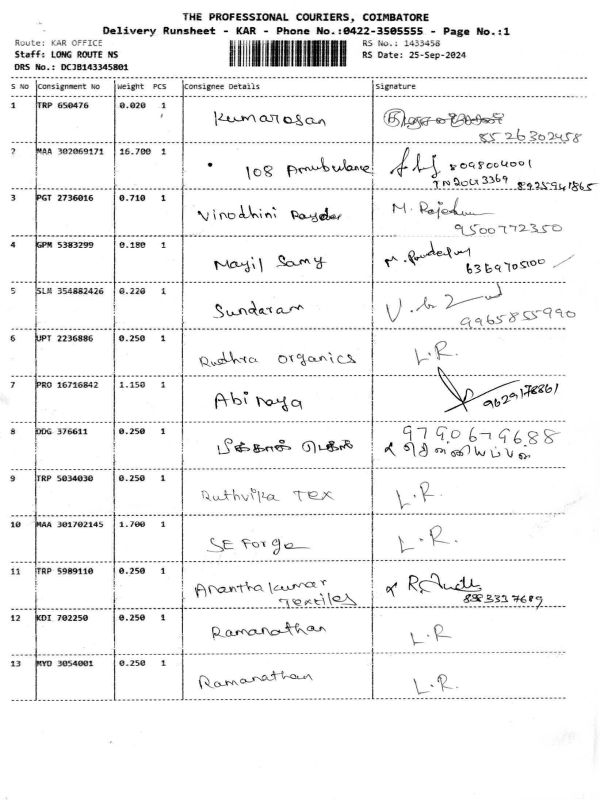 THE PROFESSIONAL COURIERS, COIMBATORE
Delivery Runsheet - KAR - Phone No.:0422-3505555 - Page No.:1
Route: KAR OFFICE RS No.: 1433458
Staff: LONG ROUTE NS RS Date: 25-Sep-2024
DRS No.: DCJB143345801
S No Consignment No Weight PCS Consignee Details Signature
1 TRP 650476 0.020 1 Kumarasan
8526302458
2 MAA 302069171 16.700 1 108 Ambulance 8098004001
TN20G3369 8925941865
3 PGT 2736016 0.710 1 Vinodhini M. Rajesh
9500772350
4 GPM 5383299 0.180 1 Mayil Samy M.
6369705100
5 SLM 354882426 0.220 1 Sundaram
9965855990
6 UPT 2236886 0.250 1 Rudhra organics L.R.
7 PRO 16716842 1.150 1 Abinaya 9629178861
8 ODG 376611 0.250 1 9790679688
9 TRP 5034030 0.250 1 Ruthvika Tex L.R.
10 MAA 301702145 1.700 1 SE Forge L.R.
11 TRP 5989110 0.250 1 Anantha kumar
Textiles
12 KDI 702250 0.250 1 Ramanathan L.R
13 MYD 3054001 0.250 1 Ramanathan L.R.